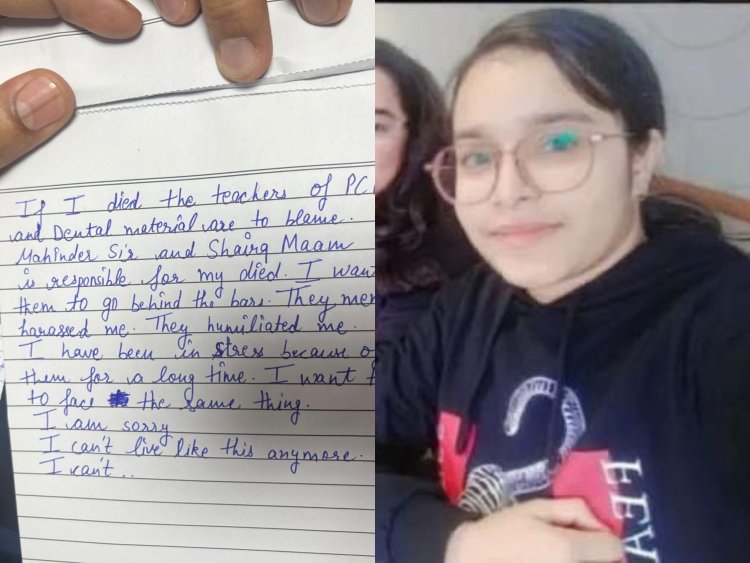 If I died the teachers of PC
and Dental material are to blame.
Mahinder Sir and Shairg Maam
is responsible for my died. I wan
them to go behind the bars. They men
harassed me. They humiliated me.
I have been in stress because o
them for a long time. I want t
to face the same thing.
I am sorry
I can't live like this anymore.
I can't..
2
FEA